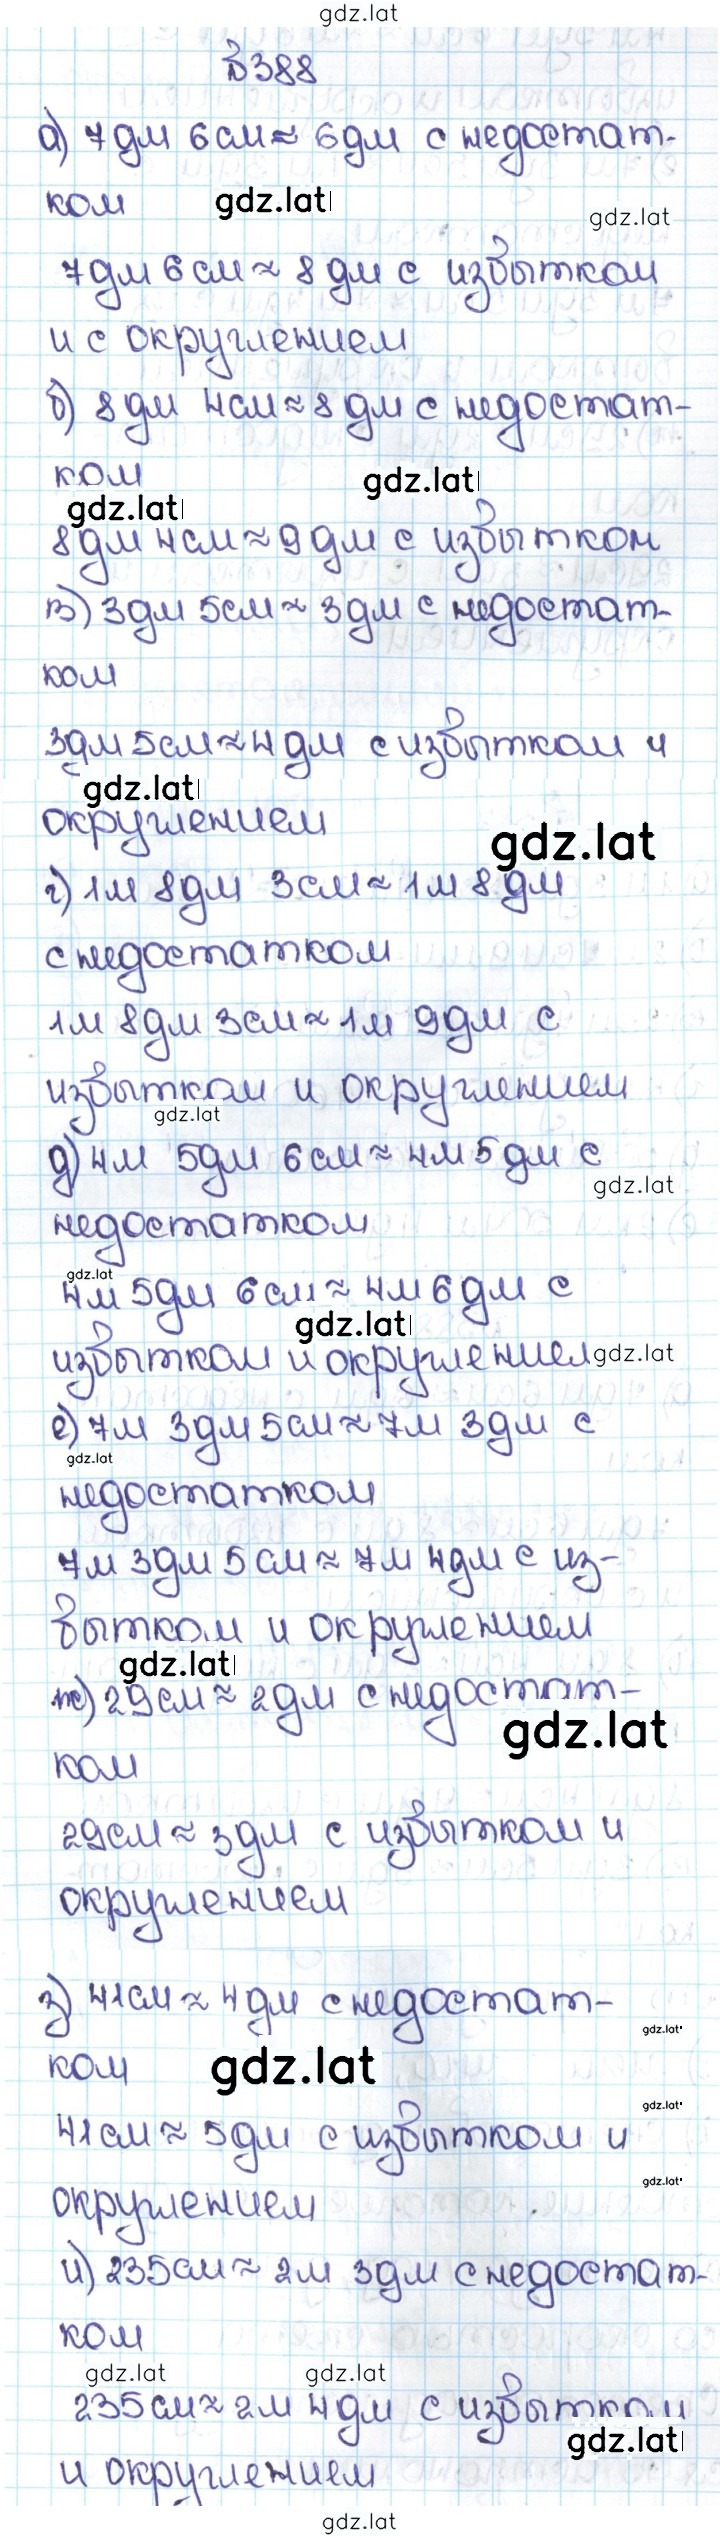 gdz.lat
№388
а) 7 дм 6 см ≈ 6 дм с недостат-
ком gdz.lat
gdz.lat
7 дм 6 см ≈ 8 дм с избытком
и с округлением
б) 8 дм 4 см ≈ 8 дм с недостат-
ком gdz.lat
gdz.lat
8 дм 4 см ≈ 9 дм с избытком
в) 3 дм 5 см ≈ 3 дм с недостат-
ком
3 дм 5 см ≈ 4 дм с избытком и
gdz.lat
округлением gdz.lat
г) 1 м 8 дм 3 см ≈ 1 м 8 дм
с недостатком
1 м 8 дм 3 см ≈ 1 м 9 дм с
избытком и округлением
gdz.lat
д) 4 м 5 дм 6 см ≈ 4 м 5 дм с
gdz.lat
недостатком
gdz.lat
4 м 5 дм 6 см ≈ 4 м 6 дм с
gdz.lat
избытком и округлением gdz.lat
е) 7 м 3 дм 5 см ≈ 7 м 3 дм с
gdz.lat
недостатком
7 м 3 дм 5 см ≈ 7 м 4 дм с из-
бытком и округлением
gdz.lat
ж) 29 см ≈ 2 дм с недостат-
gdz.lat
ком
29 см ≈ 3 дм с избытком и
округлением
з) 41 см ≈ 4 дм с недостат-
gdz.lat
ком gdz.lat
gdz.lat
41 см ≈ 5 дм с избытком и
gdz.lat
округлением
и) 235 см ≈ 2 м 3 дм с недостат-
ком
gdz.lat gdz.lat
235 см ≈ 2 м 4 дм с избытком
gdz.lat
и округлением
gdz.lat